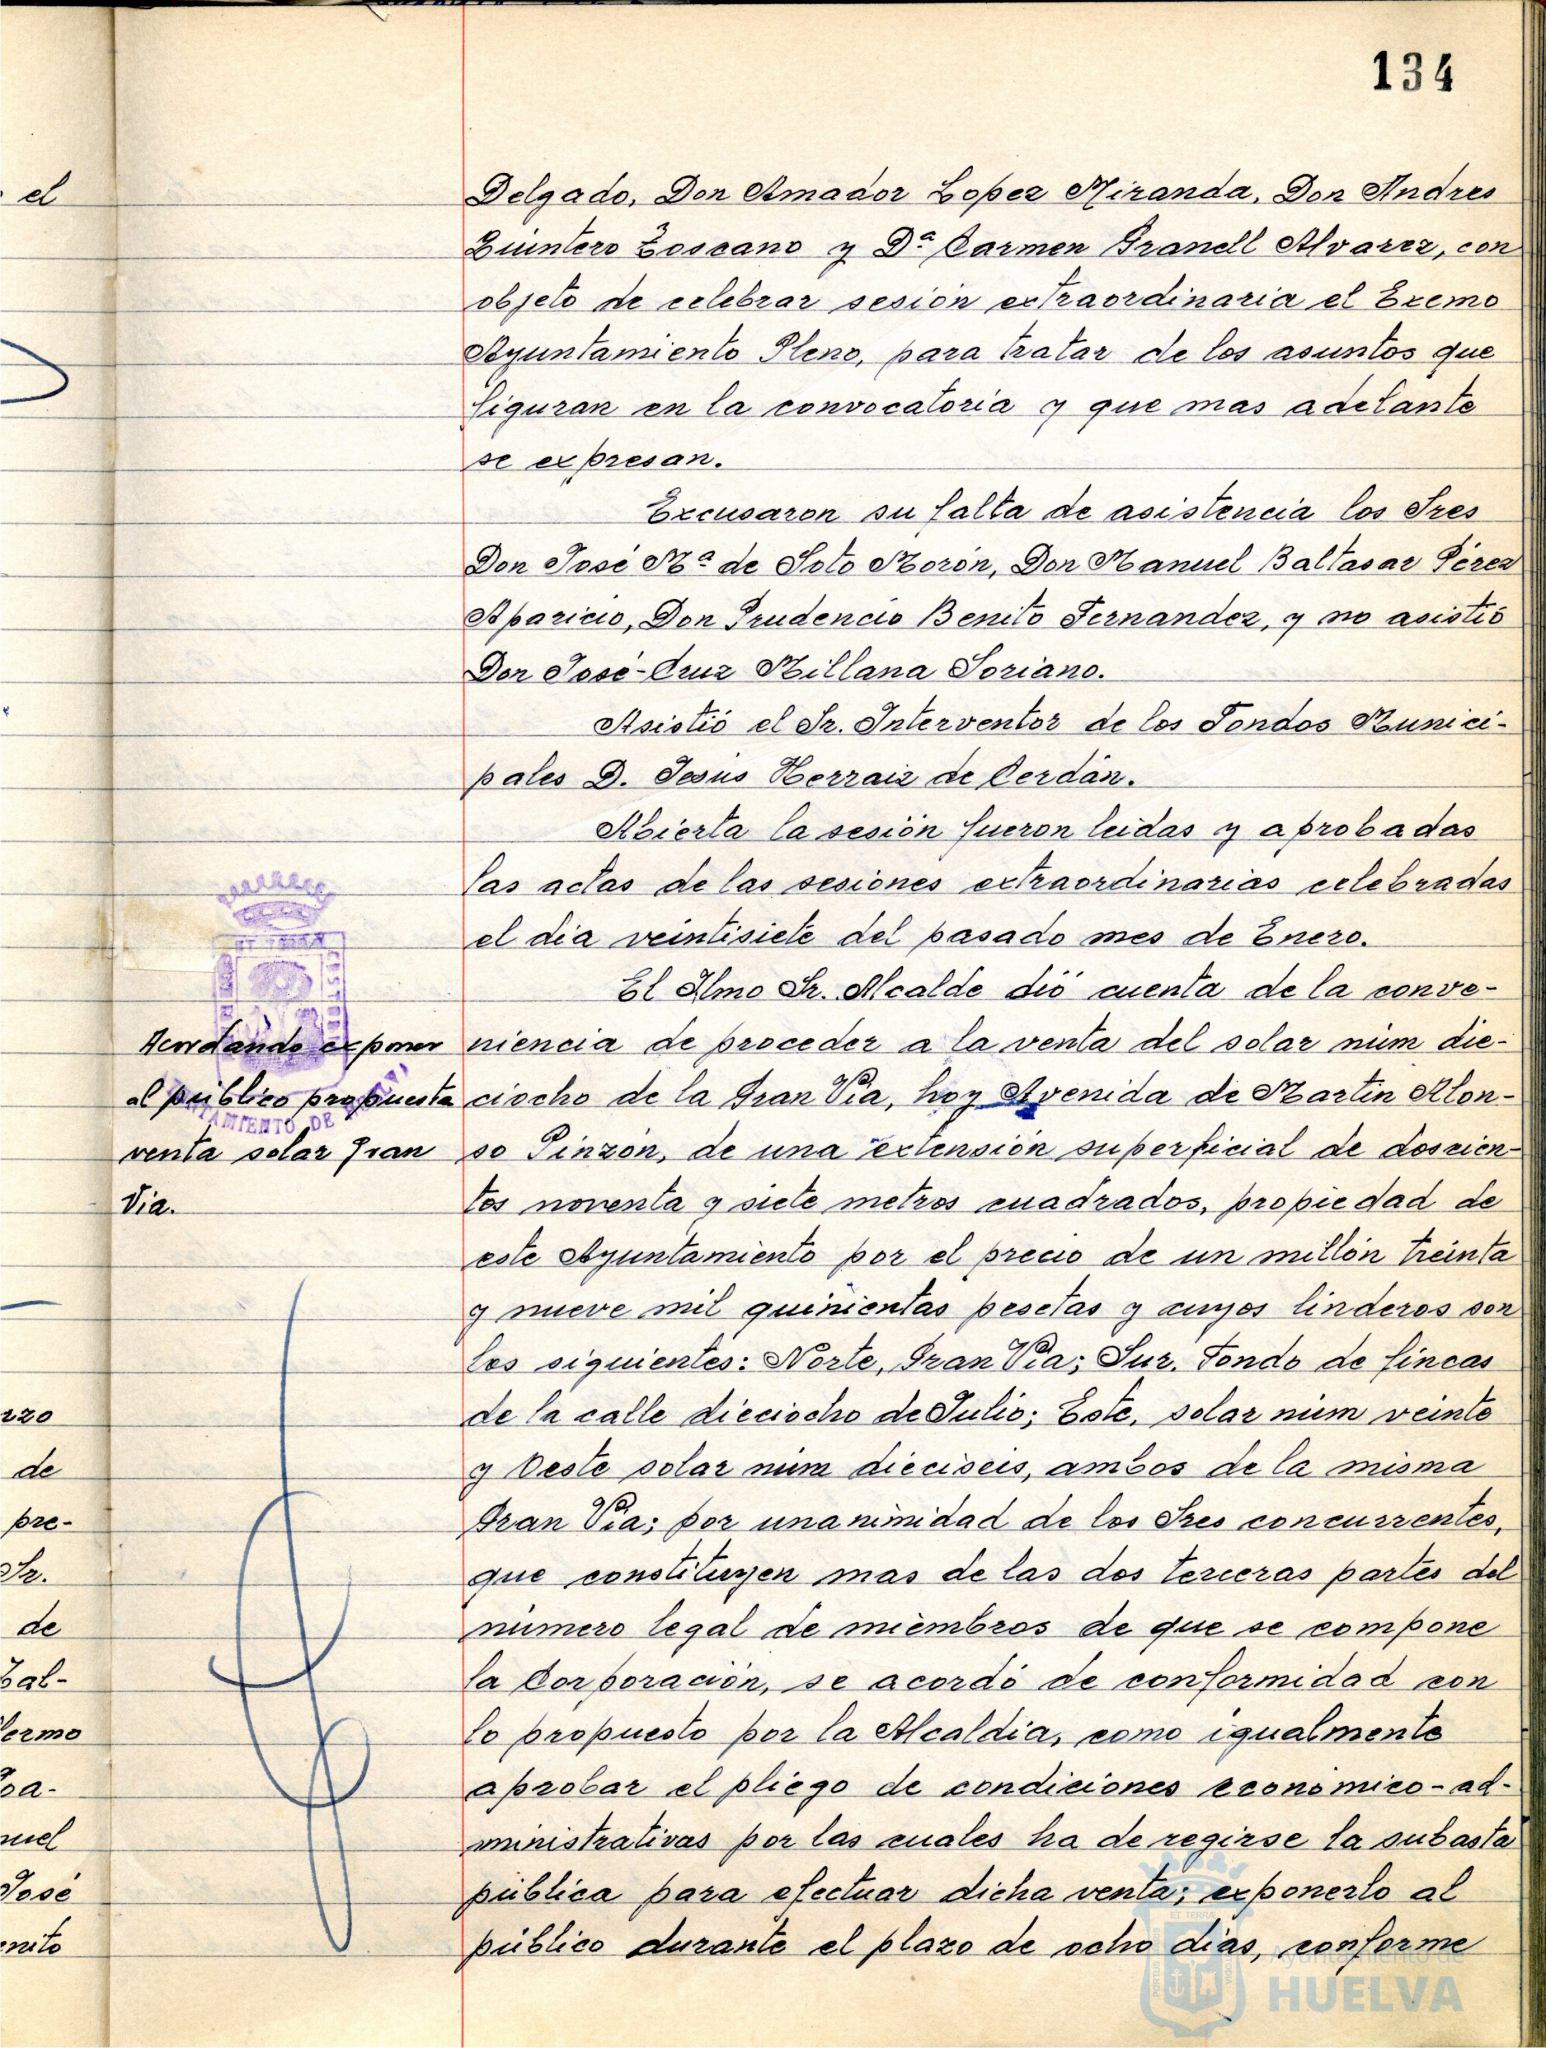 134
Delgado, Don Amador Lopez Miranda, Don Andres
Quintero Toscano y Dª Carmen Granell Alvarez, con
objeto de celebrar sesión extraordinaria el Excmo
Ayuntamiento Pleno, para tratar de los asuntos que
figuran en la convocatoria y que mas adelante
se expresan.
Excusaron su falta de asistencia los Sres
Don José Mª de Soto Morón, Don Manuel Baltasar Pérez
Aparicio, Don Prudencio Benito Fernandez, y no asistió
Don José-Cruz Millana Soriano.
Asistió el Sr. Interventor de los Fondos Munici-
pales D. Jesús Herraiz de Cerdán.
Abierta la sesión fueron leidas y aprobadas
las actas de las sesiones extraordinarias celebradas
el dia veintisiete del pasado mes de Enero.
Acordando exponer
al público propuesta
venta solar Gran
Via.
El Ilmo Sr. Alcalde dió cuenta de la conve-
niencia de proceder a la venta del solar núm die-
ciocho de la Gran Vía, hoy Avenida de Martín Alon-
so Pinzón, de una extensión superficial de doscien-
tos noventa y siete metros cuadrados, propiedad de
este Ayuntamiento por el precio de un millón treinta
y nueve mil quinientas pesetas y cuyos linderos son
los siguientes: Norte, Gran Vía; Sur. Fondo de fincas
de la calle dieciocho de Julio; Este, solar núm veinte
y Oeste solar núm dieciseis, ambos de la misma
Gran Vía; por unanimidad de los Sres concurrentes,
que constituyen mas de las dos terceras partes del
número legal de miembros de que se compone
la Corporación, se acordó de conformidad con
lo propuesto por la Alcaldia, como igualmente
aprobar el pliego de condiciones económico-ad-
ministrativas por las cuales ha de regirse la subasta
pública para efectuar dicha venta; exponerlo al
público durante el plazo de ocho días, conforme
el
rzo
de
pre-
Sr.
de
ermo
nuel
José
enito
AYUNTAMIENTO DE HUELVA
Ayuntamiento de
HUELVA